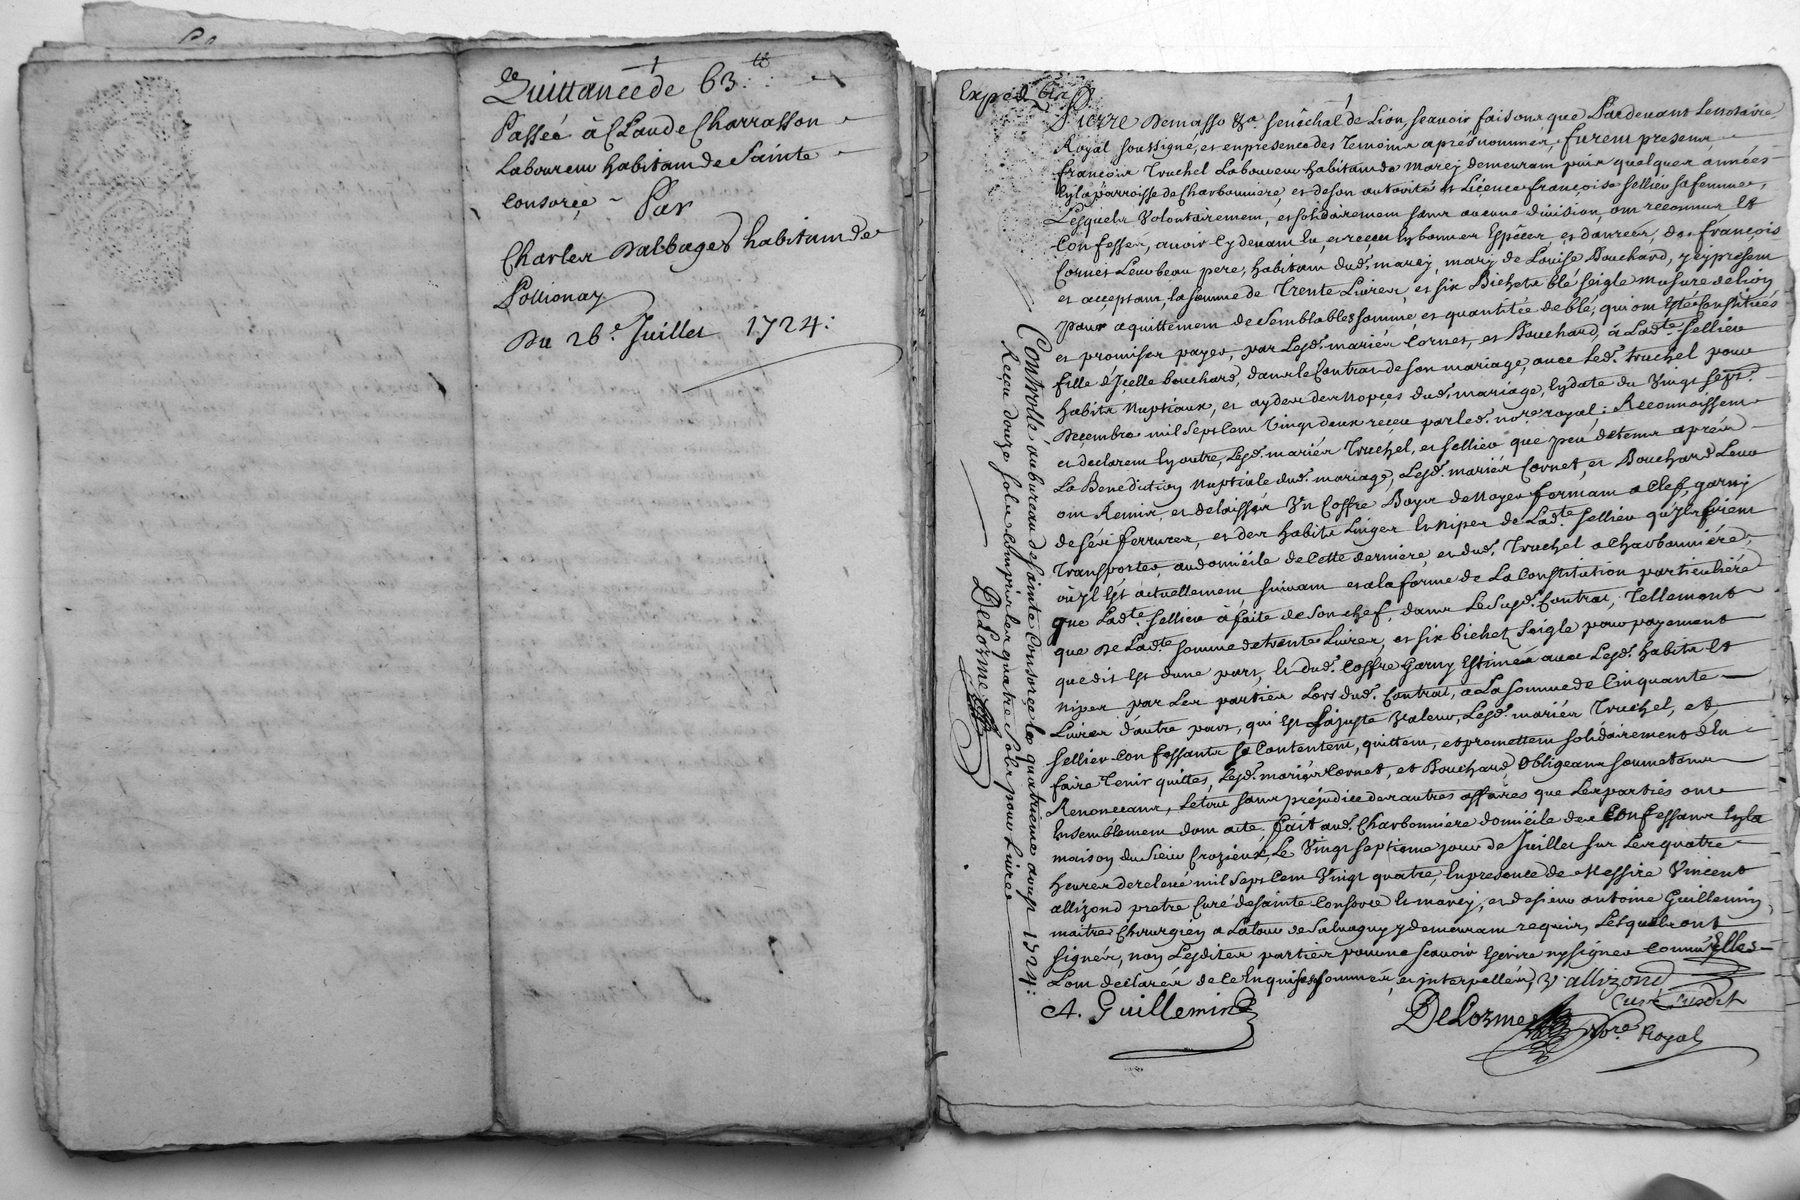 Quittance de 63.tt
Passée à Claude Charrasson
Laboureur habitant de Sainte
Consorçe ~ Par
Charles Dalbages habitant de
Pollionay
Du 26.e Juillet 1724:
Exped. bis
Pierre Demasso &a. senéchal de Lion scavoir faisons que Pardevant Le notaire
Royal soussigné, et en presence des Temoins aprés nommes, furent presens
françois Truchel Laboureur habitant de Marcy demeurant puis quelques années
En la parroisse de Charbonniere, et de son autorité et Liçence françoise Sellier sa femme,
Lesquels Volontairement, et solidairement sans aucune division, ont reconnu Et
Confessé, avoir Cy devant Eu, et reçeu En bonnes Espéces et danrées, de françois
Cornet Leur beau pere, habitant dud. marcy, mary de Louise Bouchard, Icy present
et acceptant, la somme de Trente Livres, et six Bichets blé seigle mesure de Lion
pour aquittement de Semblables somme, et quantité de blé, qui ont Esté Constitués
et promises payer, par Lesd. mariés Cornet, et Bouchard, à Ladte. Sellier
fille d'Icelle bouchard, dans le Contrat de son mariage, avec Led. truchel pour
habits Nuptiaux, et ayder des Nopçes dud. mariage, En date du Vingt sept.
Decembre mil sept Cent Vingt deux reçeu par led. nore. royal: Reconnoissent
et declarent En outre, Lesd. mariés Truchel, et Sellier que peu de tems aprés
La Benediction Nuptiale dud. mariage, Lesd. mariés Cornet, et Bouchard Leur
ont Remis, et delaissés Un Coffre Boys de Noyer fermant a Clef, garny
de ses ferrures, et des habits Linges Et Nipes de Ladte. Sellier qu'Ils firent
Transporter, au domicile de Cette derniere, et dud. Truchel a Charbonniére,
où Il Est actuellement suivant et a la forme de La Constitution particuliére
que Ladte. Sellier à faite de Son chef, dans Le Susd. Contrat, Tellement
que de Ladte. somme de trente Livres, et six bichets Seigle pour payement
que dit Est dune part, Et dud. Coffre Garny Estimés avec Lesd. habits Et
Nipes par Les parties Lors dud. Contrat, a La somme de Cinquante
Livres d'autre part, qui Est La juste Valeur, Lesd. mariés Truchel, et
Sellier Confessants Se Contentent, quittent, et promettent solidairement d'En
faire Tenir quittes, Lesd. mariés Cornet, et Bouchard, Obligeans soumetans
Renonceans, Le tout sans préjudice des autres affaires que Les parties ont
Ensemblement dont acte, fait aud. Charbonniere domicile des Confessans En la
maison du Sieur Crozieux, Le Vingt septieme jour de Juillet sur Les quatre
heures de relevé mil Sept Cent Vingt quatre, En presence de Messire Vincent
allizond pretre Curé de Sainte Consorce Et marcy, et de sieur antoine Guillemin,
maitre Chirurgien a La tour de Salvagny y demeurant requis, Lesquels ont
signés, non Lesdites parties pour ne scavoir Escrire ny signer Comme Elles
L'ont declarés de Ce Enquises sommées, et interpellées, V. allizond
Curé Susdit
A. Guillemin
DeLorme
Nore. Royal
Controllé au bureau de Sainte Consorce le quatrieme aoust 1724:
Reçeu douze sols compris les quatre sols pour Livre
DeLorme